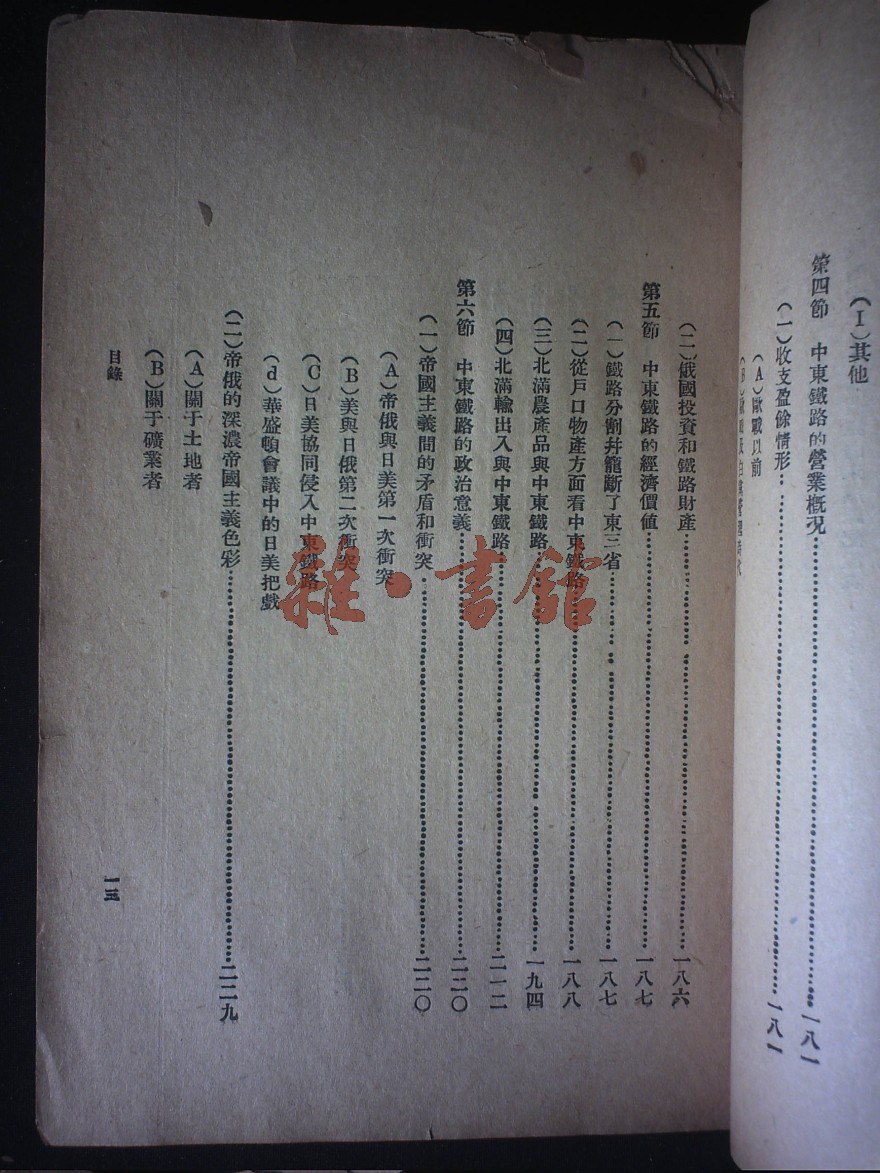 (I)其他
第四節 中東鐵路的營業概況……一八一
(一)收支盈餘情形……一八一
(A)歐戰以前
(二)俄國投資和鐵路財產……一八六
第五節 中東鐵路的經濟價值……一八七
(一)鐵路分割幷籠斷了東三省……一八七
(二)從戶口物產方面看中東鐵路……一八八
(三)北滿農產品與中東鐵路……一九四
(四)北滿輸出入與中東鐵路……二一二
第六節 中東鐵路的政治意義……二二〇
(一)帝國主義間的矛盾和衝突……二二〇
(A)帝俄與日美第一次衝突
(B)美與日俄第二次衝突
(C)日美協同侵入中東鐵路
(d)華盛頓會議中的日美把戲
(二)帝俄的深濃帝國主義色彩……二二九
(A)關于土地者
(B)關于礦業者
目錄
一三
雜·書館